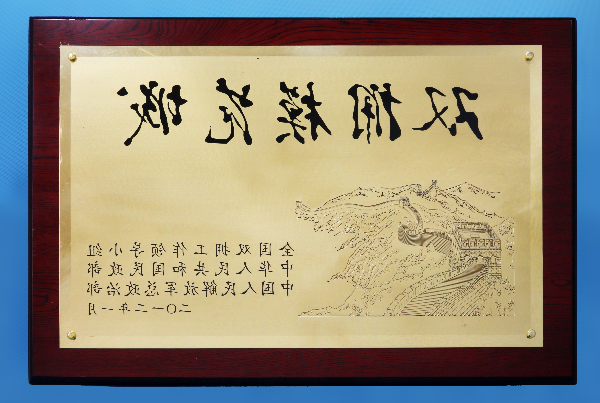 双拥模范城
全国双拥工作领导小组
中华人民共和国民政部
中国人民解放军总政治部
二〇一二年一月